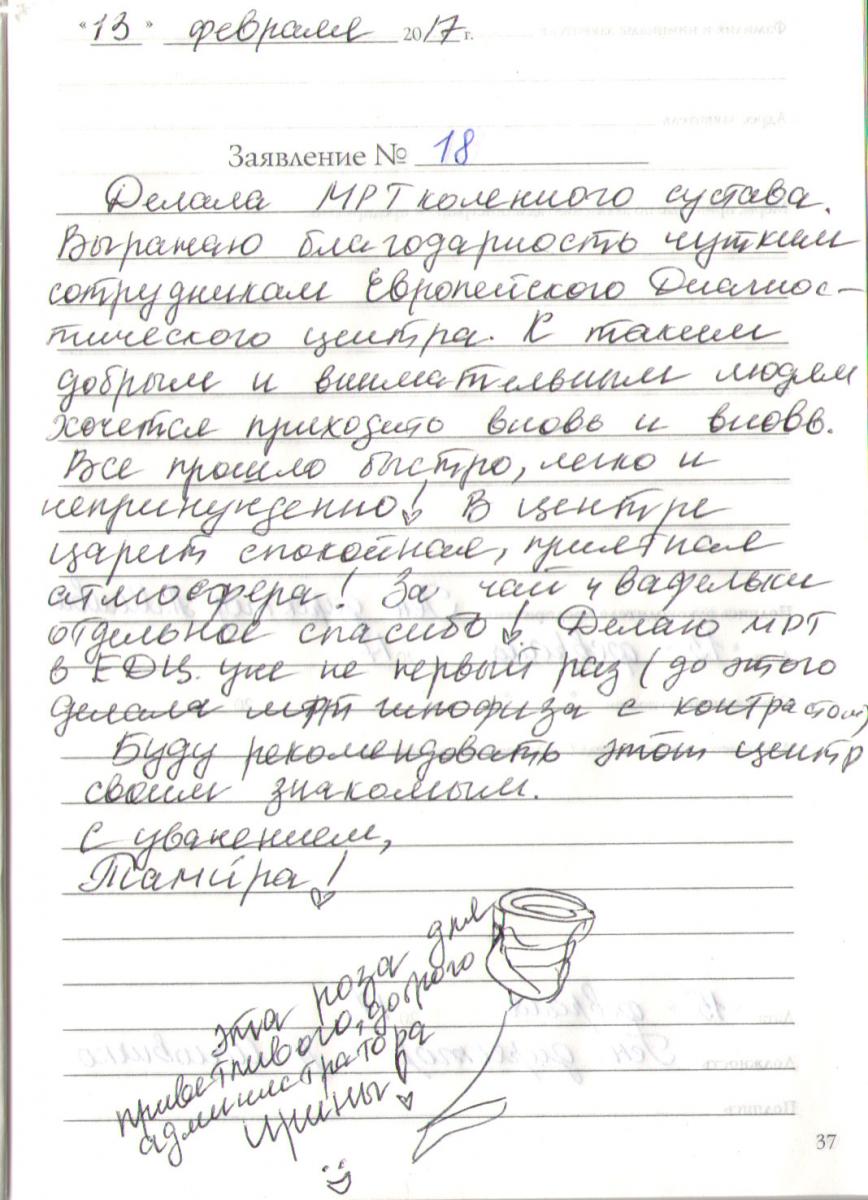 "13" февраля 2017г.
Заявление № 18
Делала МРТ коленного сустава.
Выражаю благодарность чутким
сотрудникам Европейского Диагнос-
тического центра. К таким
добрым и внимательным людям
хочется приходить вновь и вновь.
Все прошло быстро, легко и
непринужденно! В центре
царит спокойная, приятная
атмосфера! За чай и вафельки
отдельное спасибо! Делаю МРТ
в ЕДЦ уже не первый раз (до этого
делала мрт гипофиза с контрастом)
Буду рекомендовать этот центр
своим знакомым.
С уважением,
Тамира!
Эта роза для
приветливого, доброго
администратора
Ирины!
37